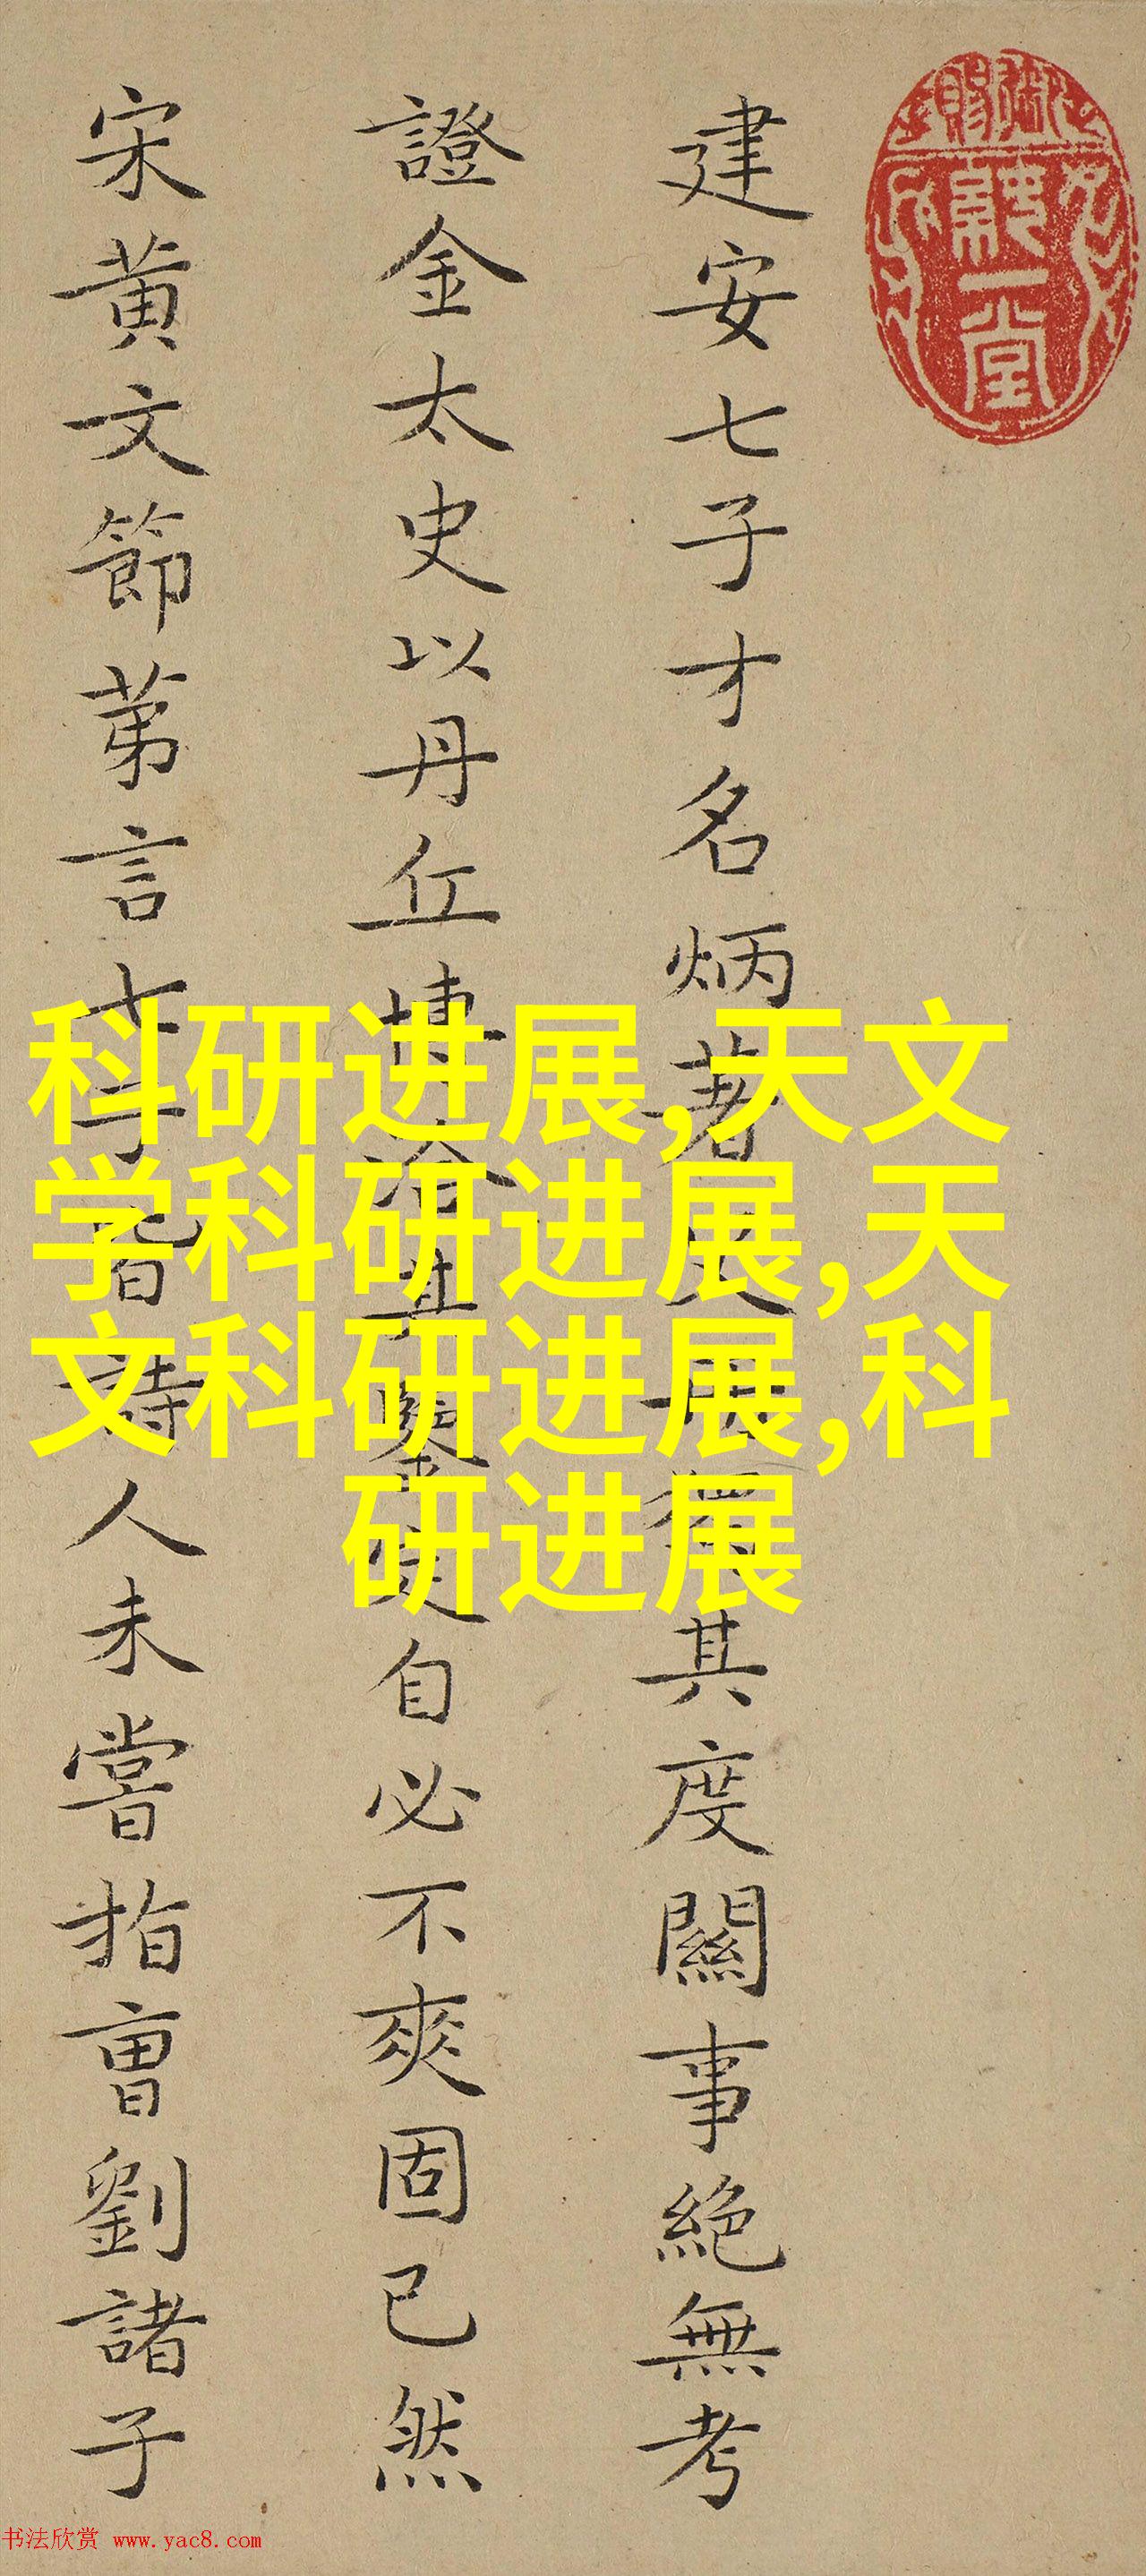 建安七子才名炳著其度關事絶無考
證金太史以丹丘博洽其鑒定自必不爽固已然
宋黄文節苐言七子皆詩人未嘗指曹劉諸子
科研进展,天文
学科研进展,天
文科研进展,科
研进展
书法欣赏 www.yac8.com